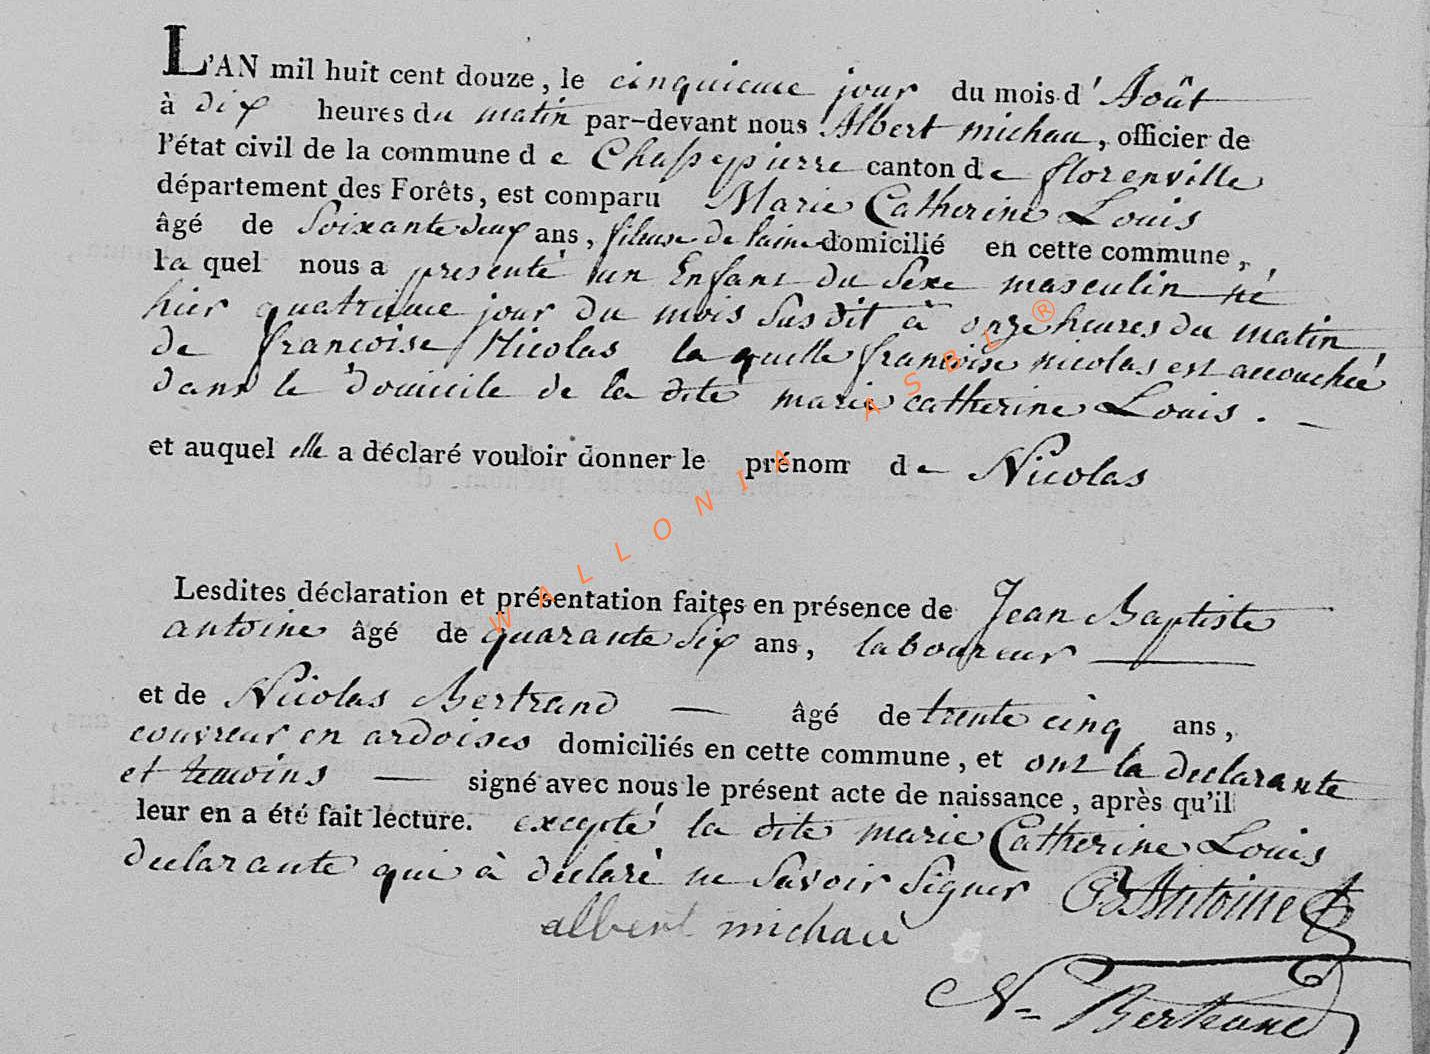 L'AN mil huit cent douze, le cinquieme jour du mois d'Août
à dix heures du matin par-devant nous Albert michau, officier de
l'état civil de la commune de Chassepierre canton de florenville
département des Forêts, est comparu Marie Catherine Louis
âgé de Soixante deux ans, fileuse de laine domicilié en cette commune,
laquel nous a presenté un Enfant du Sexe masculin né
hier quatrieme jour du mois Susdit à onze heures du matin
de françoise Nicolas la quelle françoise nicolas est accouchée
dans le domicile de la dite marie catherine Louis.
et auquel elle a déclaré vouloir donner le prénom de Nicolas
Lesdites déclaration et présentation faites en présence de Jean Baptiste
antoine âgé de quarante Six ans, laboureur
et de Nicolas Bertrand âgé de trente cinq ans,
couvreur en ardoises domiciliés en cette commune, et ont la declarante
et temoins signé avec nous le présent acte de naissance, après qu'il
leur en a été fait lecture. excepté la dite marie Catherine Louis
declarante qui à declaré ne Savoir Signer Antoine
albert michau
N= Bertrand
WALLONIA ASBL ®